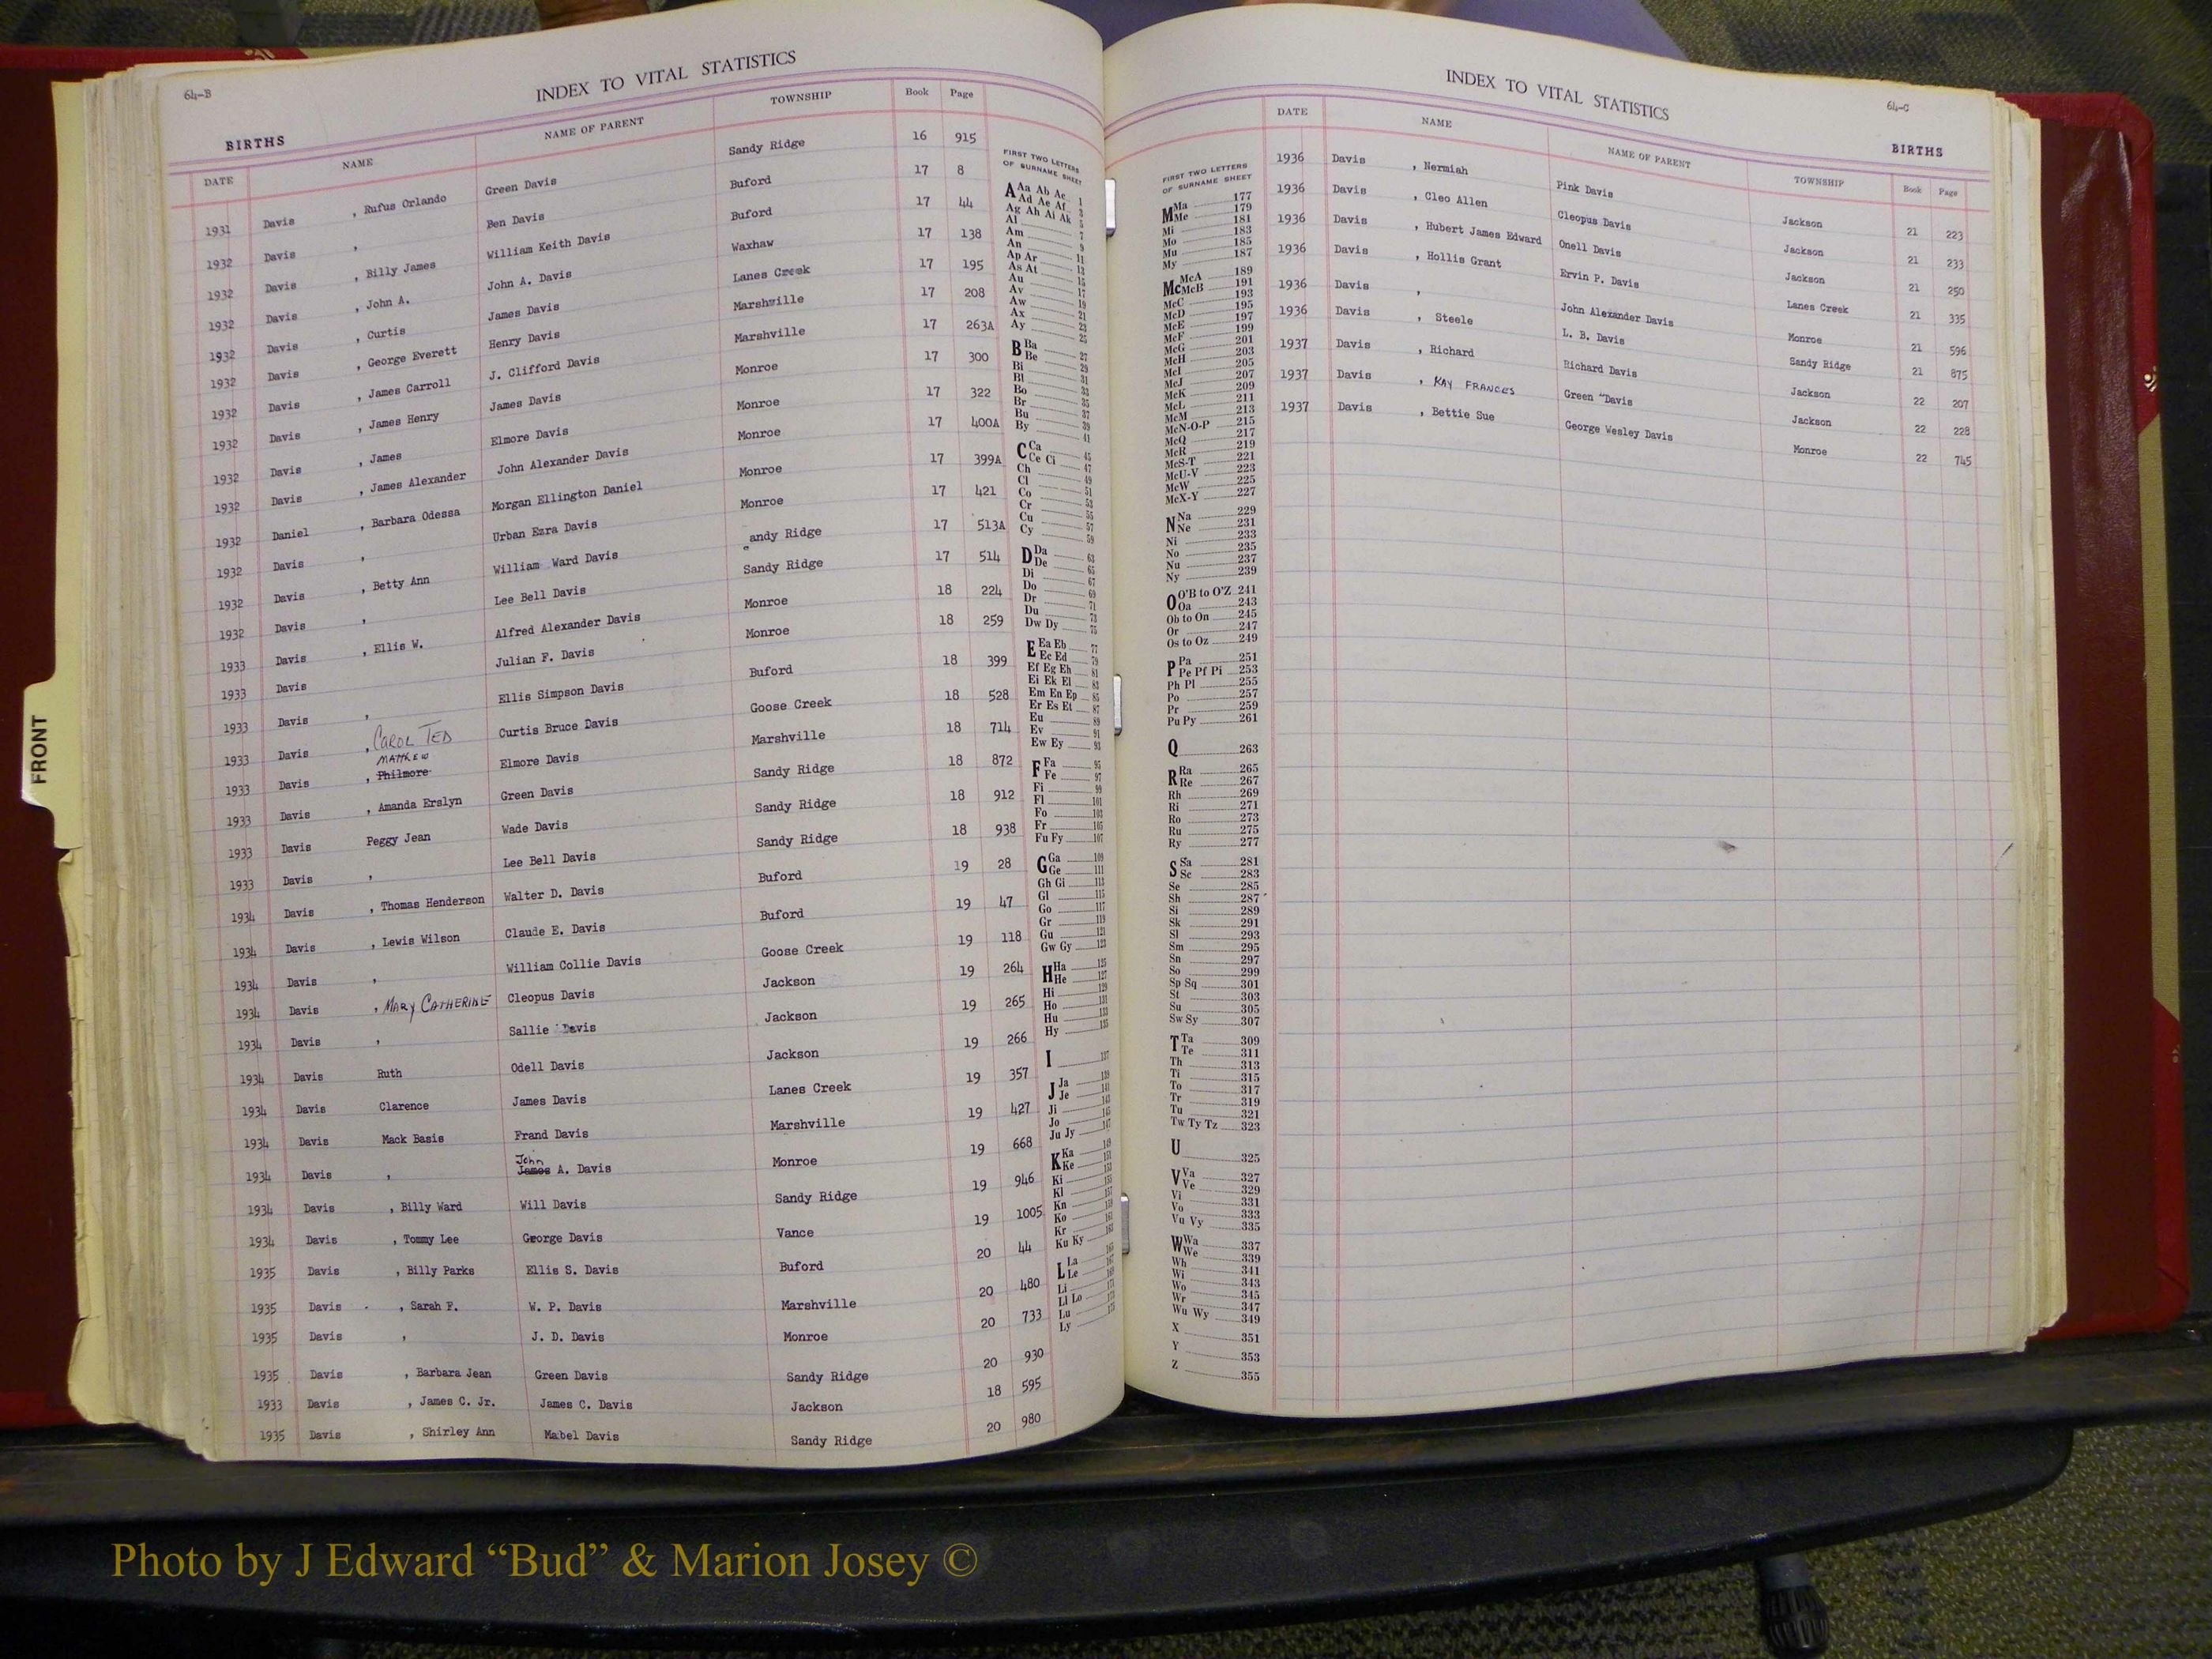 64-B
INDEX TO VITAL STATISTICS
BIRTHS
DATE NAME NAME OF PARENT TOWNSHIP Book Page
1931 Davis , Rufus Orlando Green Davis Sandy Ridge 16 915
1932 Davis , Ben Davis Buford 17 8
1932 Davis , Billy James William Keith Davis Buford 17 44
1932 Davis , John A. John A. Davis Waxhaw 17 138
1932 Davis , Curtis James Davis Lanes Creek 17 195
1932 Davis , George Everett Henry Davis Marshville 17 208
1932 Davis , James Carroll J. Clifford Davis Marshville 17 263A
1932 Davis , James Henry James Davis Monroe 17 300
1932 Davis , James Elmore Davis Monroe 17 322
1932 Davis , James Alexander John Alexander Davis Monroe 17 400A
1932 Daniel , Barbara Odessa Morgan Ellington Daniel Monroe 17 399A
1932 Davis , Urban Ezra Davis Monroe 17 421
1932 Davis , Betty Ann William Ward Davis andy Ridge 17 513A
1932 Davis , Lee Bell Davis Sandy Ridge 17 514
1933 Davis , Ellis W. Alfred Alexander Davis Monroe 18 224
1933 Davis Julian F. Davis Monroe 18 259
1933 Davis , Ellis Simpson Davis Buford 18 399
1933 Davis , CAROL TED Curtis Bruce Davis Goose Creek 18 528
MATTHEW
1933 Davis , Philmore Elmore Davis Marshville 18 714
1933 Davis , Amanda Erslyn Green Davis Sandy Ridge 18 872
1933 Davis Peggy Jean Wade Davis Sandy Ridge 18 912
1933 Davis , Lee Bell Davis Sandy Ridge 18 938
1934 Davis , Thomas Henderson Walter D. Davis Buford 19 28
1934 Davis , Lewis Wilson Claude E. Davis Buford 19 47
1934 Davis , William Collie Davis Goose Creek 19 118
1934 Davis , MARY CATHERINE Cleopus Davis Jackson 19 264
1934 Davis , Sallie Davis Jackson 19 265
1934 Davis Ruth Odell Davis Jackson 19 266
1934 Davis Clarence James Davis Lanes Creek 19 357
1934 Davis Mack Basis Frand Davis Marshville 19 427
John
1934 Davis , James A. Davis Monroe 19 668
1934 Davis , Billy Ward Will Davis Sandy Ridge 19 946
1934 Davis , Tommy Lee George Davis Vance 19 1005
1935 Davis , Billy Parks Ellis S. Davis Buford 20 44
1935 Davis , Sarah F. W. P. Davis Marshville 20 480
1935 Davis , J. D. Davis Monroe 20 733
1935 Davis , Barbara Jean Green Davis Sandy Ridge 20 930
1933 Davis , James C. Jr. James C. Davis Jackson 18 595
1935 Davis , Shirley Ann Mabel Davis Sandy Ridge 20 980
FIRST TWO LETTERS
OF SURNAME SHEET
A Aa Ab Ac 1
Ad Ae Af 3
Ag Ah Ai Ak 5
Al 7
Am 9
An 11
Ap Ar 13
As At 15
Au 17
Av 19
Aw 21
Ax 23
Ay 25
B Ba 27
Be 29
Bi 31
Bl 33
Bo 35
Br 37
Bu 39
By 41
C Ca 45
Ce Ci 47
Ch 49
Cl 51
Co 53
Cr 55
Cu 57
Cy 59
D Da 63
De 65
Di 67
Do 69
Dr 71
Du 73
Dw Dy 75
E Ea Eb 77
Ec Ed 79
Ef Eg Eh 81
Ei Ek El 83
Em En Ep 85
Er Es Et 87
Eu 89
Ev 91
Ew Ey 93
F Fa 95
Fe 97
Fi 99
Fl 101
Fo 103
Fr 105
Fu Fy 107
G Ga 109
Ge 111
Gh Gi 113
Gl 115
Go 117
Gr 119
Gu 121
Gw Gy 123
H Ha 125
He 127
Hi 129
Ho 131
Hu 133
Hy 135
I 137
J Ja 139
Je 141
Ji 143
Jo 145
Ju Jy 147
K Ka 149
Ke 151
Ki 153
Kl 155
Kn 157
Ko 159
Kr 161
Ku Ky 163
L La 165
Le 167
Li 169
Ll Lo 171
Lu 173
Ly 175
FRONT
INDEX TO VITAL STATISTICS
64-C
BIRTHS
DATE NAME NAME OF PARENT TOWNSHIP Book Page
1936 Davis , Nermiah Pink Davis Jackson 21 223
1936 Davis , Cleo Allen Cleopus Davis Jackson 21 233
1936 Davis , Hubert James Edward Onell Davis Jackson 21 250
1936 Davis , Hollis Grant Ervin P. Davis Lanes Creek 21 335
1936 Davis , John Alexander Davis Monroe 21 596
1936 Davis , Steele L. B. Davis Sandy Ridge 21 875
1937 Davis , Richard Richard Davis Jackson 22 207
1937 Davis , KAY FRANCES Green "Davis Jackson 22 228
1937 Davis , Bettie Sue George Wesley Davis Monroe 22 745
FIRST TWO LETTERS
OF SURNAME SHEET
M Ma 177
Me 179
Mi 181
Mo 183
Mu 185
My 187
Mc McA 189
McB 191
McC 193
McD 195
McE 197
McF 199
McG 201
McH 203
McI 205
McJ 207
McK 209
McL 211
McM 213
McN-O-P 215
McQ 217
McR 219
McS-T 221
McU-V 223
McW 225
McX-Y 227
N Na 229
Ne 231
Ni 233
No 235
Nu 237
Ny 239
O O'B to O'Z 241
Oa 243
Ob to On 245
Or 247
Os to Oz 249
P Pa 251
Pe Pf Pi 253
Ph Pl 255
Po 257
Pr 259
Pu Py 261
Q 263
R Ra 265
Re 267
Rh 269
Ri 271
Ro 273
Ru 275
Ry 277
S Sa 281
Sc 283
Se 285
Sh 287
Si 289
Sk 291
Sl 293
Sm 295
Sn 297
So 299
Sp Sq 301
St 303
Su 305
Sw Sy 307
T Ta 309
Te 311
Th 313
Ti 315
To 317
Tr 319
Tu 321
Tw Ty Tz 323
U 325
V Va 327
Ve 329
Vi 331
Vo 333
Vu Vy 335
W Wa 337
We 339
Wh 341
Wi 343
Wo 345
Wr 347
Wu Wy 349
X 351
Y 353
Z 355
Photo by J Edward “Bud” & Marion Josey ©